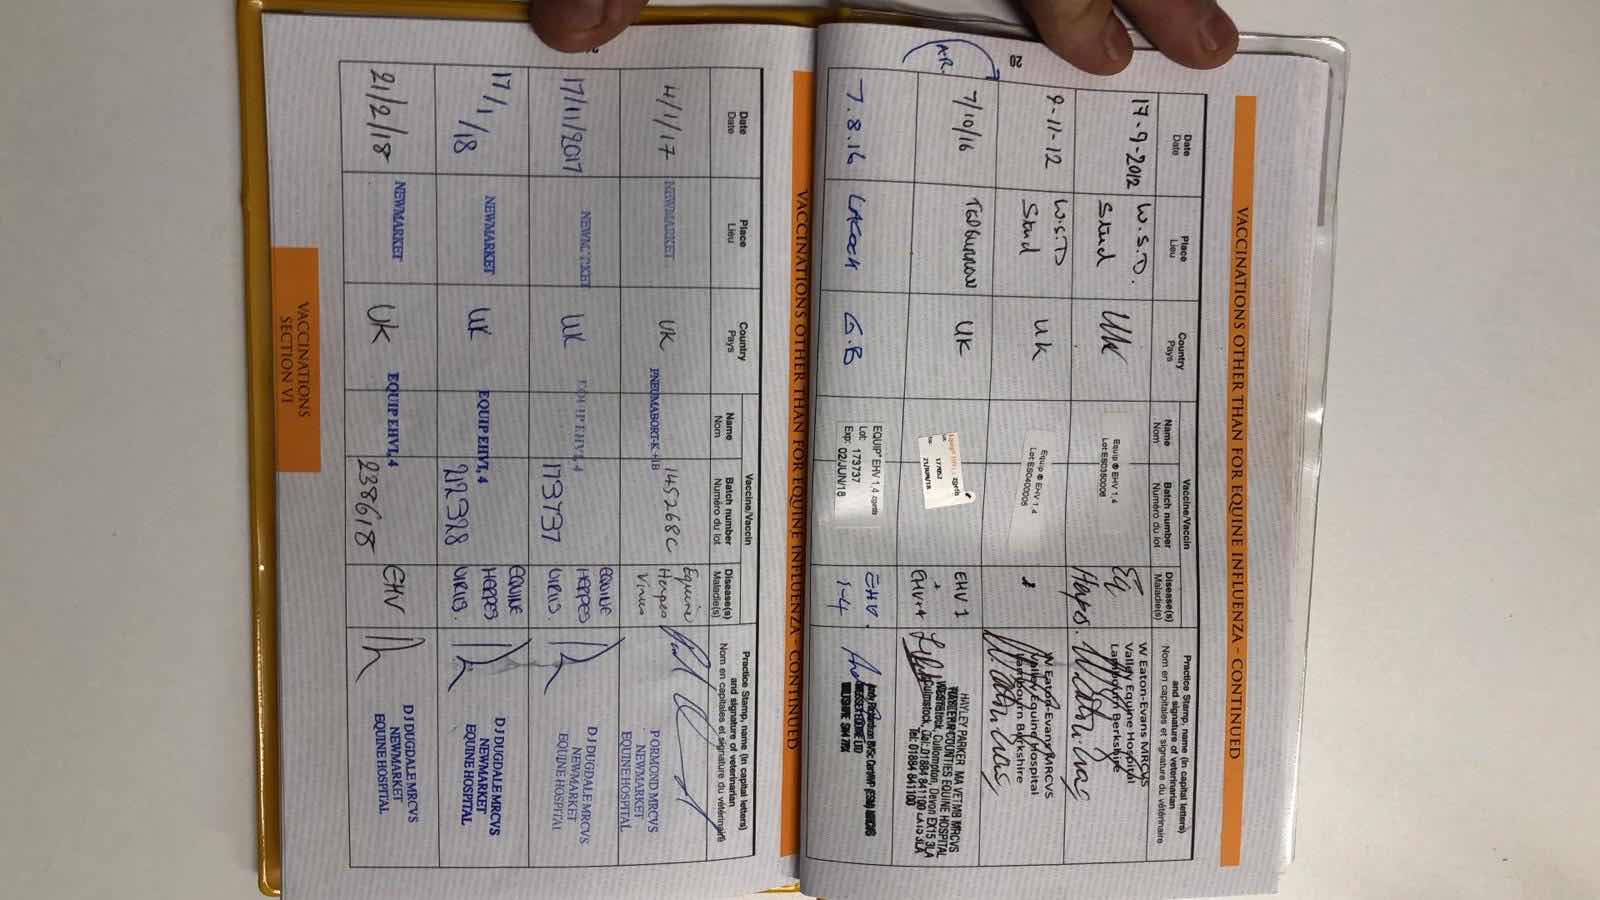 20
VACCINATIONS OTHER THAN FOR EQUINE INFLUENZA - CONTINUED
Date
Date
Place
Lieu
Country
Pays
Vaccine/Vaccin
Name
Nom
Batch number
Numéro du lot
Disease(s)
Maladie(s)
Practice Stamp, name (in capital letters)
and signature of veterinarian
Nom en capitales et signature du vétérinaire
17-9-2012
W.S.D.
Stud
UK
Equip ® EHV 1,4
Lot:ES0350008
Eq
Herpes.
W Eaton-Evans MRCVS
Valley Equine Hospital
Lambourn Berkshire
9-11-12
W.S.D
Stud
UK
Equip ® EHV 1,4
Lot:ES0400006
W Eaton-Evans MRCVS
Valley Equine Hospital
Lambourn Berkshire
A.R.
7/10/16
UK
21/JUN/18
EHV1
+
EHV+4
HAYLEY PARKER MA VETMB MRCVS
WESTERN COUNTIES EQUINE HOSPITAL
Culmstock, Cullompton, Devon EX15 3LA
Tel: 01884 841100
7.8.16
LACOCK
G.B
EQUIP® EHV 1,4 zoetis
Lot: 173737
Exp: 02/JUN/18
EHV.
1-4
VACCINATIONS OTHER THAN FOR EQUINE INFLUENZA - CONTINUED
Date
Date
Place
Lieu
Country
Pays
Vaccine/Vaccin
Name
Nom
Batch number
Numéro du lot
Disease(s)
Maladie(s)
Practice Stamp, name (in capital letters)
and signature of veterinarian
Nom en capitales et signature du vétérinaire
4/1/17
NEWMARKET
UK
PNEUMABORT-K +1B
145268C
Equine
Herpes
Virus
P ORMOND MRCVS
NEWMARKET
EQUINE HOSPITAL
17/11/2017
NEWMARKET
UK
EQUIP EHV1, 4
173737
EQUINE
HERPES
VIRUS.
D J DUGDALE MRCVS
NEWMARKET
EQUINE HOSPITAL
17/1/18
NEWMARKET
UK
EQUIP EHV1, 4
212328
EQUINE
HERPES
VIRUS.
D J DUGDALE MRCVS
NEWMARKET
EQUINE HOSPITAL
21/2/18
NEWMARKET
UK
EQUIP EHV1, 4
238618
EHV
D J DUGDALE MRCVS
NEWMARKET
EQUINE HOSPITAL
VACCINATIONS
SECTION VI